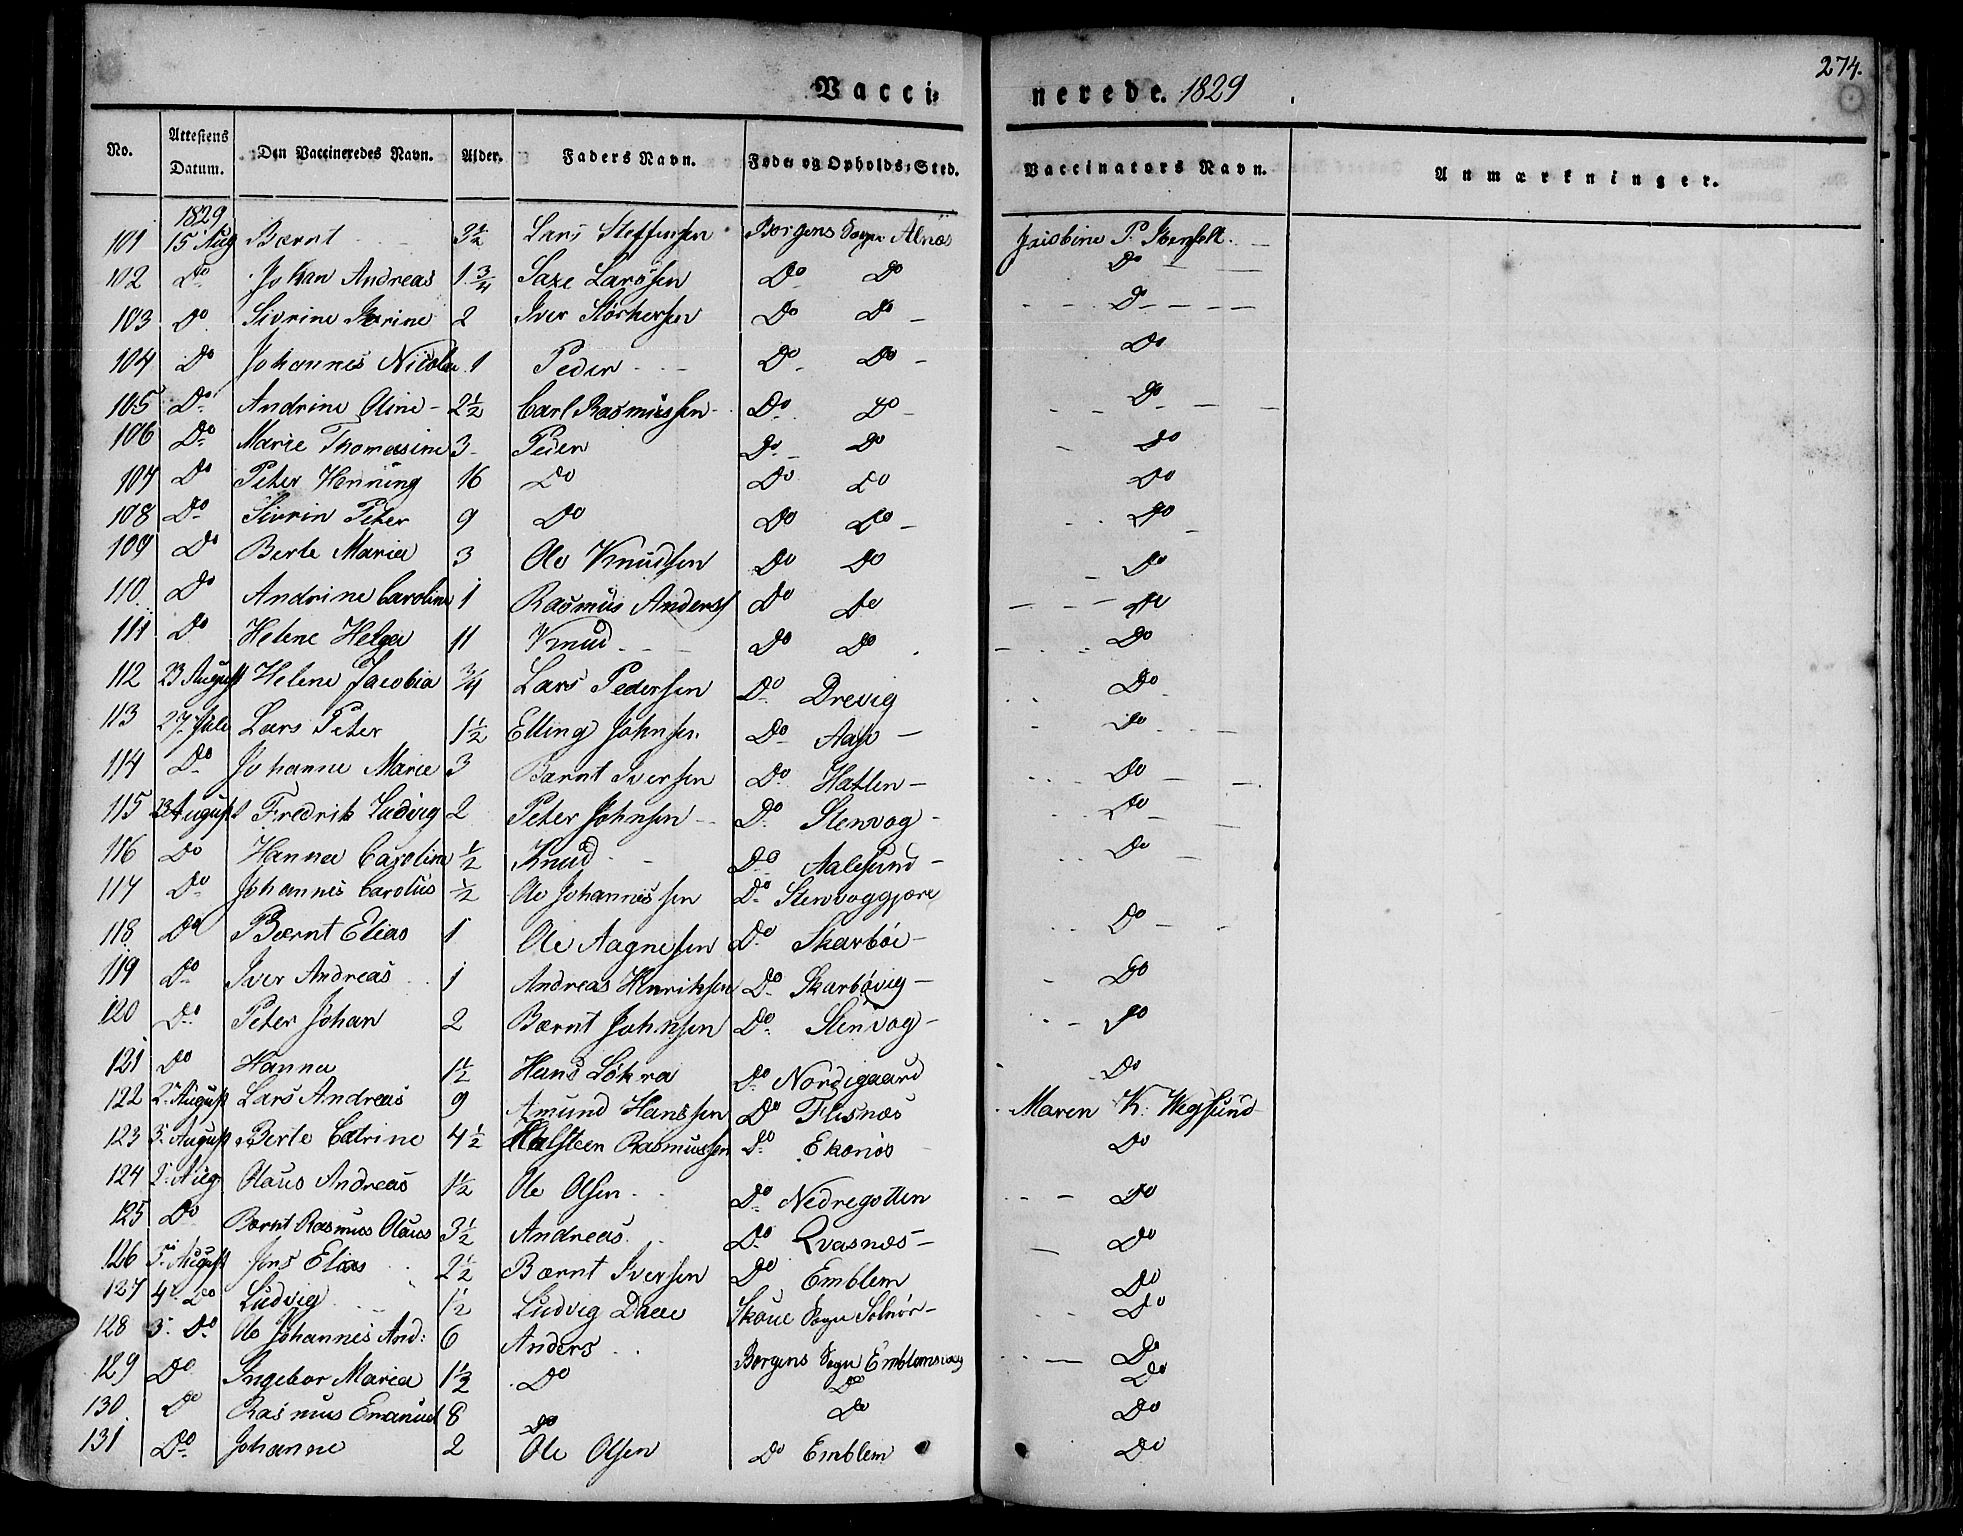 274.
Vacci- nerede. 1829
No. Attestens Datum. Den Vaccineredes Navn. Alder. Faders Navn. Føde og Opholds-Sted. Vaccinators Navn. Anmærkninger.
1829
101 15 Aug Bærnt 3½ Lars Steffensen Borgens Sogn Alnøs P.
102 Do Johan Andreas 1¾ Saxe Larssen Do Do Do
103 Do Sivrine 2 Iver Do Do Do
104 Do Johannes Nicolai 1 Peder Do Do Do
105 Do Andrine Oline 2½ Carl Rasmussen Do Do Do
106 Do Marie Thomasine 3 Peder Do Do Do
107 Do Peter Henning 16 Do Do Do Do
108 Do Sivrin Peter 9 Do Do Do Do
109 Do Berte Maria 3 Ole Knudsen Do Do Do
110 Do Andrine Caroline 1 Rasmus Anders Do Do Do
111 Do Helene Helga 11 Knud Do Do Do
112 23 August Helene Jacobia ¾ Lars Pedersen Do Drevig Do
113 27. Juli Lars Peter 1½ Elling Johnsen Do Aase Do
114 Do Johanne Marie 3 Bærnt Iversen Do Hatlen Do
115 23 August Fredrik Ludvig 2 Peter Johnsen Do Stenvog Do
116 Do Hanna Caroline ½ Knud Do Aalesund Do
117 Do Johannis Carolus ½ Ole Johannissen Do Stenvoggjære
118 Do Bærnt Elias 1 Ole Aagnesen Do Skarbøe Do
119 Do Iver Andreas 1 Andreas Henriksen Do Skarbøvig Do
120 Do Peter Johan 2 Bærnt Johnsen Do Stenvog Do
121 Do Hanna 1½ Hans Løkra Do Nordigaard Do
122 2 August Lars Andreas 9 Amund Hanssen Do Flisnæs Maren K. Wegsund
123 5 August Berte Catrine 4½ Halsteen Rasmussen Do Ekonøs Do
124 2 Aug Olaus Andreas 1½ Ole Olsen Do Nedregotten Do
125 Do Bærnt Rasmus Olaus 3½ Andreas Do Qvasnæs Do
126 5 August Jens Elias 2½ Bærnt Iversen Do Emblem Do
127 4 Do Ludvig 1½ Ludvig Daae Skoue Sogn Solnør Do
128 3 Do Ole Johannes And: 6 Anders Borgens Sogn Emblemsvog Do
129 Do Ingebor Maria 1½ Do Do Do
130 Do Rasmus Emanuel 8 Do Do Do
131 Do Johanne 2 Ole Olsen Do Emblem Do